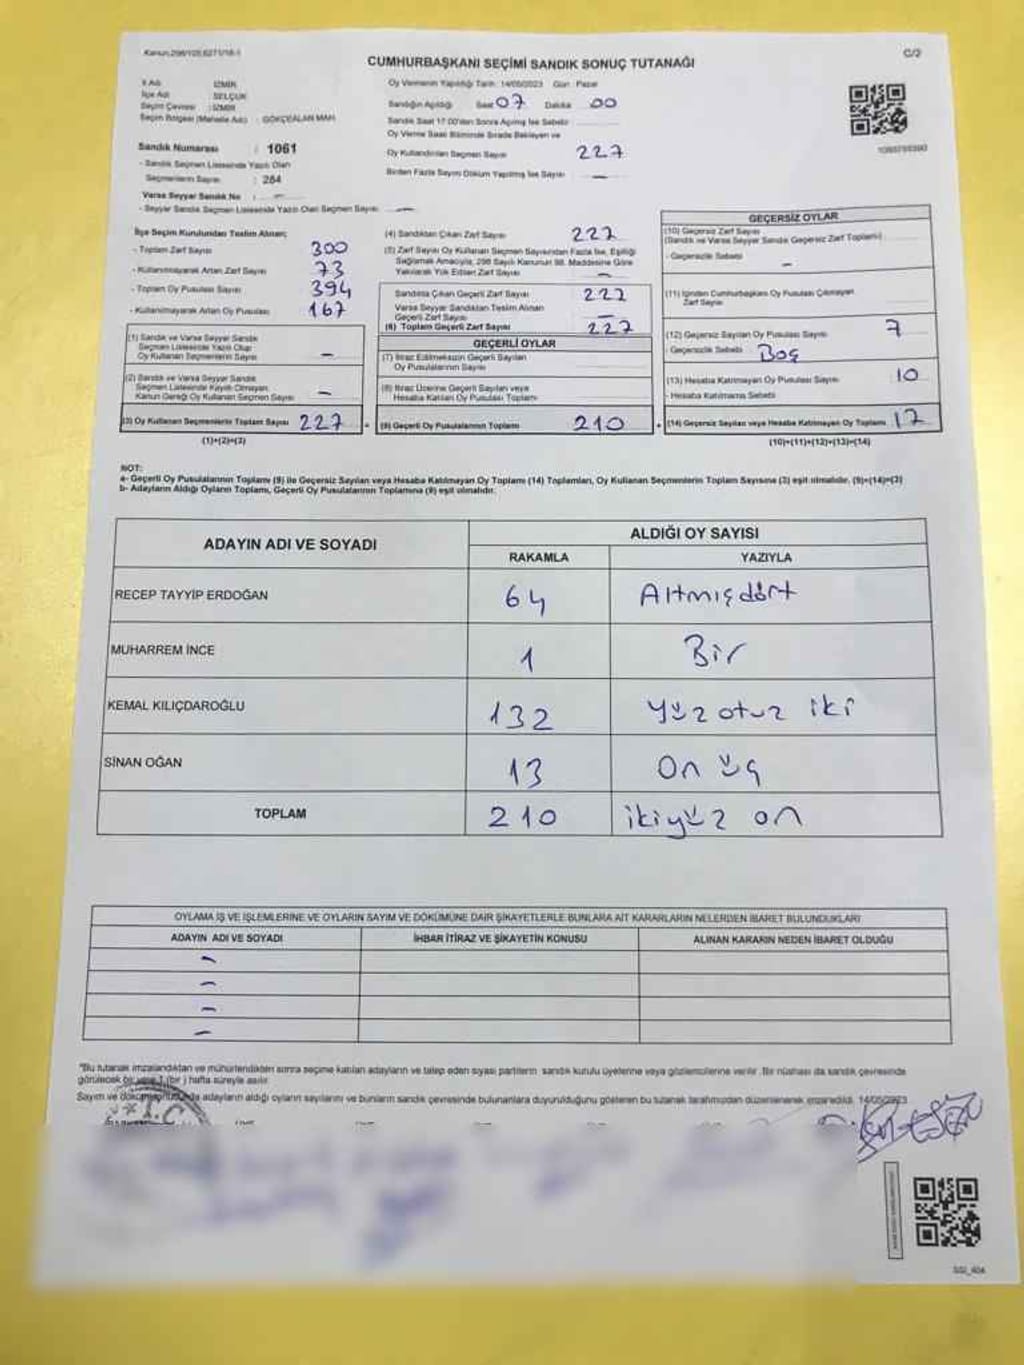 Kanun:298/105,6271/18-1
C/2
CUMHURBAŞKANI SEÇİMİ SANDIK SONUÇ TUTANAĞI
İl Adı : İZMİR
İlçe Adı : SELÇUK
Seçim Çevresi : İZMİR
Seçim Bölgesi (Mahalle Adı) : GÖKÇEALAN MAH.
Sandık Numarası : 1061
- Sandık Seçmen Listesinde Yazılı Olan
Seçmenlerin Sayısı : 284
Varsa Seyyar Sandık No : -
- Seyyar Sandık Seçmen Listesinde Yazılı Olan Seçmen Sayısı -
Oy Vermenin Yapıldığı Tarih: 14/05/2023 Gün: Pazar
Sandığın Açıldığı Saat 07 Dakika 00
Sandık Saat 17:00'den Sonra Açılmış İse Sebebi
Oy Verme Saati Bitiminde Sırada Bekleyen ve
Oy Kullandırılan Seçmen Sayısı 227
Birden Fazla Sayım Döküm Yapılmış İse Sayısı -
İlçe Seçim Kurulundan Teslim Alınan;
- Toplam Zarf Sayısı 300
- Kullanılmayarak Artan Zarf Sayısı 73
- Toplam Oy Pusulası Sayısı 394
- Kullanılmayarak Artan Oy Pusulası 167
(1) Sandık ve Varsa Seyyar Sandık
Seçmen Listesinde Yazılı Olup
Oy Kullanan Seçmen Sayısı -
(2) Sandık ve Varsa Seyyar Sandık
Seçmen Listesinde Kayıtlı Olmayan,
Kanun Gereği Oy Kullanan Seçmen Sayısı -
(3) Oy Kullanan Seçmenlerin Toplam Sayısı 227
(1)+(2)=(3)
(4) Sandıktan Çıkan Zarf Sayısı 227
(5) Zarf Sayısı Oy Kullanan Seçmen Sayısından Fazla İse, Eşitliği
Sağlamak Amacıyla, 298 Sayılı Kanunun 98. Maddesine Göre
Yakılarak Yok Edilen Zarf Sayısı -
Sandıkta Çıkan Geçerli Zarf Sayısı 227
Varsa Seyyar Sandıktan Teslim Alınan
Geçerli Zarf Sayısı -
(6) Toplam Geçerli Zarf Sayısı 227
GEÇERLİ OYLAR
(7) İtiraz Edilmeksizin Geçerli Sayılan
Oy Pusulalarının Sayısı
(8) İtiraz Üzerine Geçerli Sayılan veya
Hesaba Katılan Oy Pusulası Toplamı
(9) Geçerli Oy Pusulalarının Toplamı 210
GEÇERSİZ OYLAR
(10) Geçersiz Zarf Sayısı
(Sandık ve Varsa Seyyar Sandık Geçersiz Zarf Toplamı)
- Geçersizlik Sebebi -
(11) İçinden Cumhurbaşkanı Oy Pusulası Çıkmayan
Zarf Sayısı
(12) Geçersiz Sayılan Oy Pusulası Sayısı 7
- Geçersizlik Sebebi Boş
(13) Hesaba Katılmayan Oy Pusulası Sayısı 10
- Hesaba Katılmama Sebebi
(14) Geçersiz Sayılan veya Hesaba Katılmayan Oy Toplamı 17
(10)+(11)+(12)+(13)=(14)
NOT:
a- Geçerli Oy Pusulalarının Toplamı (9) ile Geçersiz Sayılan veya Hesaba Katılmayan Oy Toplamı (14) Toplamları, Oy Kullanan Seçmenlerin Toplam Sayısına (3) eşit olmalıdır. (9)+(14)=(3)
b- Adayların Aldığı Oyların Toplamı, Geçerli Oy Pusulalarının Toplamına (9) eşit olmalıdır.
ADAYIN ADI VE SOYADI
ALDIĞI OY SAYISI
RAKAMLA YAZIYLA
RECEP TAYYİP ERDOĞAN 64 Altmışdört
MUHARREM İNCE 1 Bir
KEMAL KILIÇDAROĞLU 132 Yüz otuz iki
SİNAN OĞAN 13 On üç
TOPLAM 210 ikiyüz on
OYLAMA İŞ VE İŞLEMLERİNE VE OYLARIN SAYIM VE DÖKÜMÜNE DAİR ŞİKAYETLERLE BUNLARA AİT KARARLARIN NELERDEN İBARET BULUNDUKLARI
ADAYIN ADI VE SOYADI İHBAR İTİRAZ VE ŞİKAYETİN KONUSU ALINAN KARARIN NEDEN İBARET OLDUĞU
-
-
-
-
"Bu tutanak imzalandıktan ve mühürlendikten sonra seçime katılan adayların ve talep eden siyasi partilerin sandık kurulu üyelerine veya gözlemcilerine verilir. Bir nüshası da sandık çevresinde
görülecek bir yere 1 (bir) hafta süreyle asılır.
Sayım ve dökümü adayların aldığı oyların sayılarını ve bunların sandık çevresinde bulunanlara duyurulduğunu gösteren bu tutanak tarafımızdan düzenlenerek imzalandı. 14/05/2023
T.C